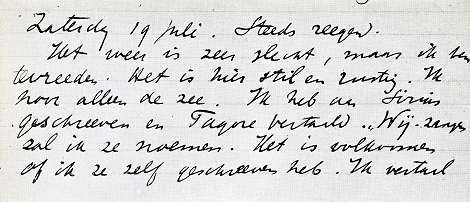 Zaterdag 19 juli. Steeds reegen.
Het weer is zeer slecht, maar ik ben
tevreeden. Het is hier stil en rustig. Ik
hoor alleen de zee. Ik heb aan Sirius
geschreeven en Tagore vertaald. „Wij-zangen
zal ik ze noemen. Het is volkomen
of ik ze zelf geschreeven heb. Ik vertaal